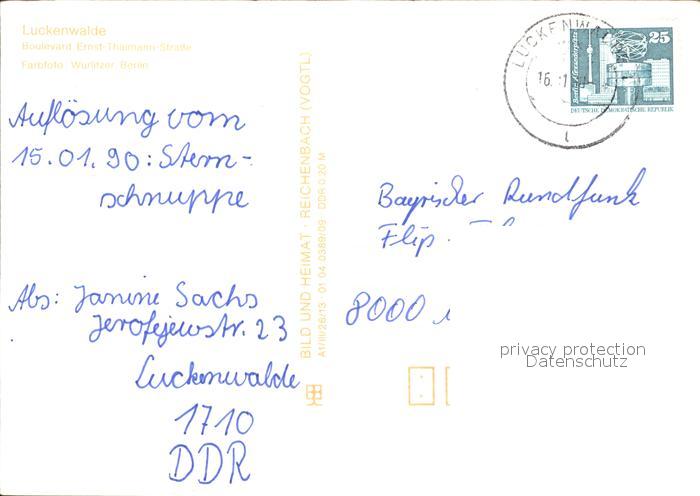 Luckenwalde
Boulevard Ernst-Thälmann-Straße
Farbfoto: Wurlitzer, Berlin
Auflösung vom
15.01.90: Stern-
schnuppe
Abs: Janine Sachs
Jerofejewstr. 23
Luckenwalde
1710
DDR
BILD UND HEIMAT · REICHENBACH (VOGTL)
A1/III/26/13 01 04 0369/09 DDR 0,20 M
LUCKENWALDE
16.
Berlin, Alexanderplatz
25
DEUTSCHE DEMOKRATISCHE REPUBLIK
Bayrischer Rundfunk
Flip
8000
privacy protection
Datenschutz